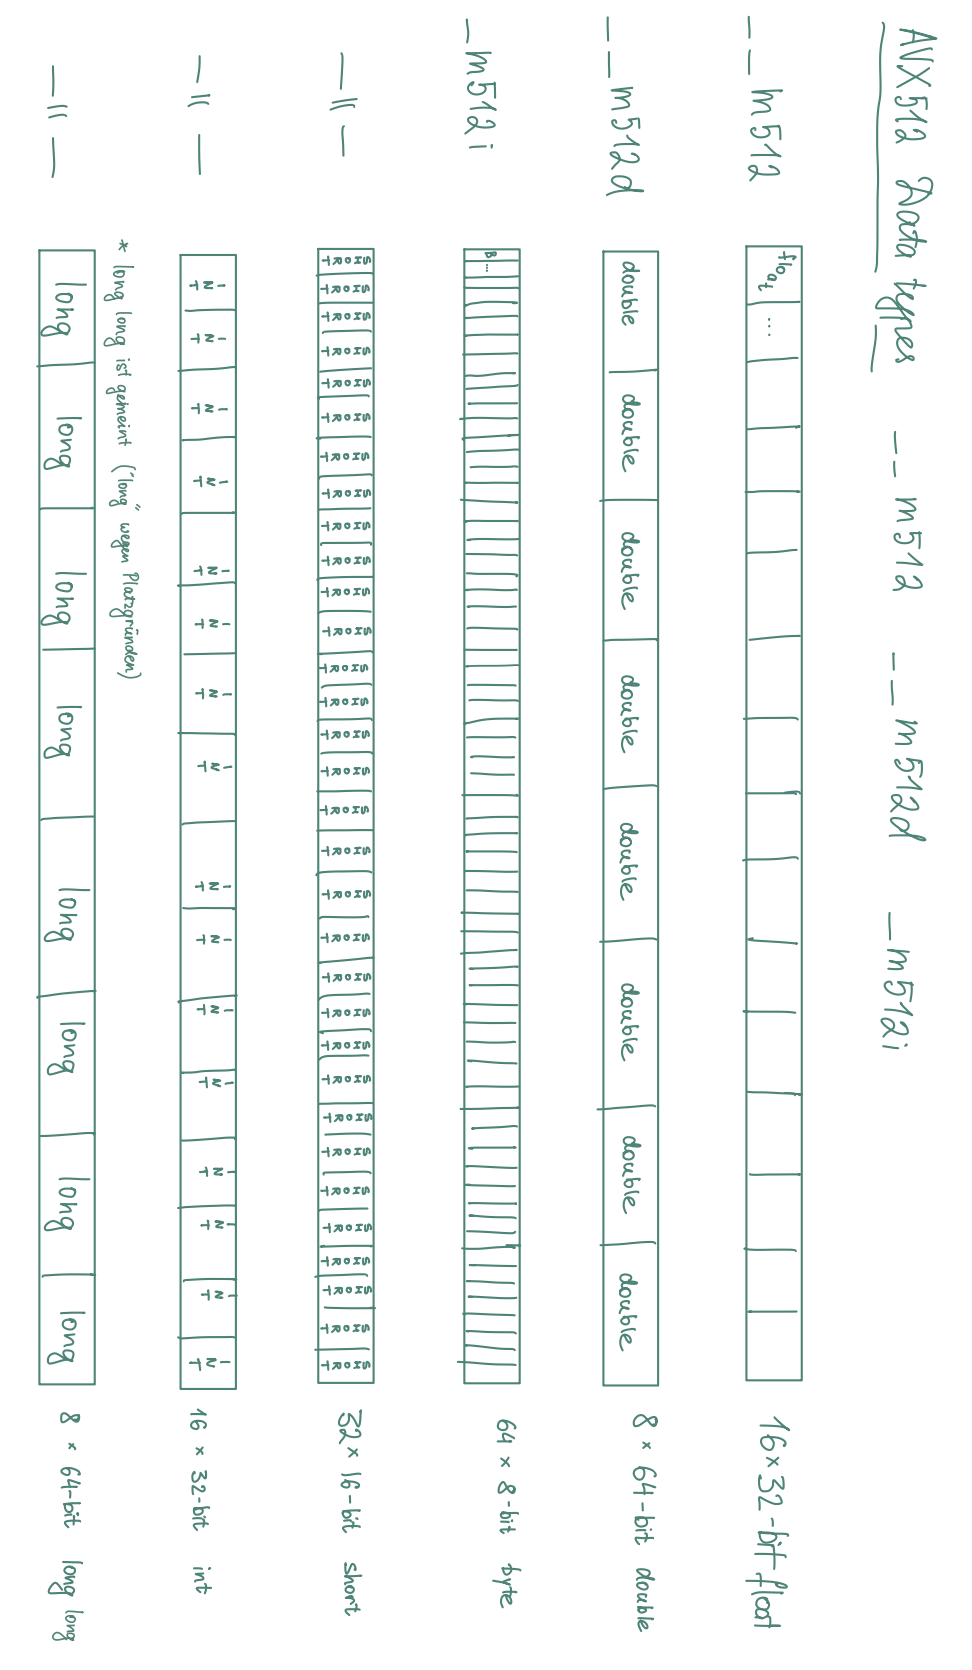 AVX512 Data types __m512 __m512d _m512i
__m512 float ... 16 × 32-bit float
__m512d double double double double double double double double 8 × 64-bit double
_m512i B ... 64 × 8-bit byte
—||— SHORT SHORT SHORT SHORT SHORT SHORT SHORT SHORT SHORT SHORT SHORT SHORT SHORT SHORT SHORT SHORT SHORT SHORT SHORT SHORT SHORT SHORT SHORT SHORT SHORT SHORT SHORT SHORT SHORT SHORT SHORT SHORT 32 × 16-bit short
—||— INT INT INT INT INT INT INT INT INT INT INT INT INT INT INT INT 16 × 32-bit int
* long long ist gemeint ("long" wegen Platzgründen)
—||— long long long long long long long long 8 × 64-bit long long